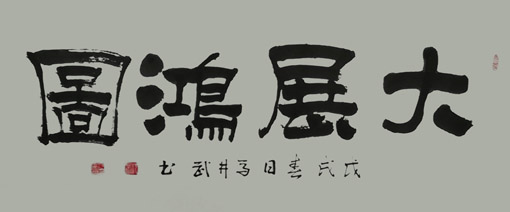 大展鴻圖
戊戌春日马井武书